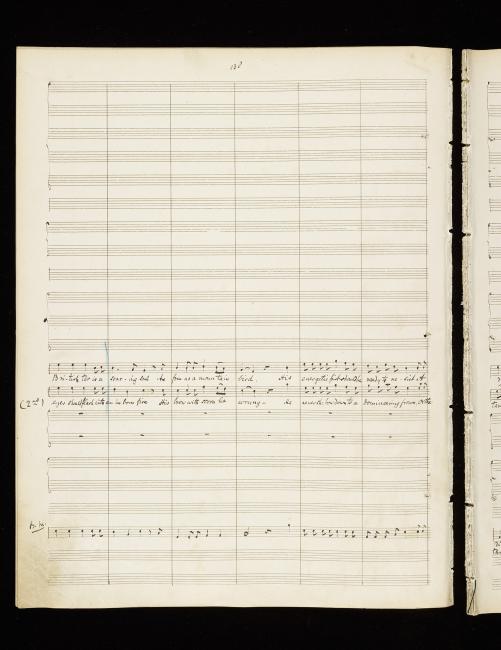 138
British tar is a soar-ing soul As free as a mountain bird. His energetic fist should be ready to re-sist A
(2nd) eyes should flash with an in born fire His brow with scorn be wrung. He never should bow down to a domineering frown, Or the